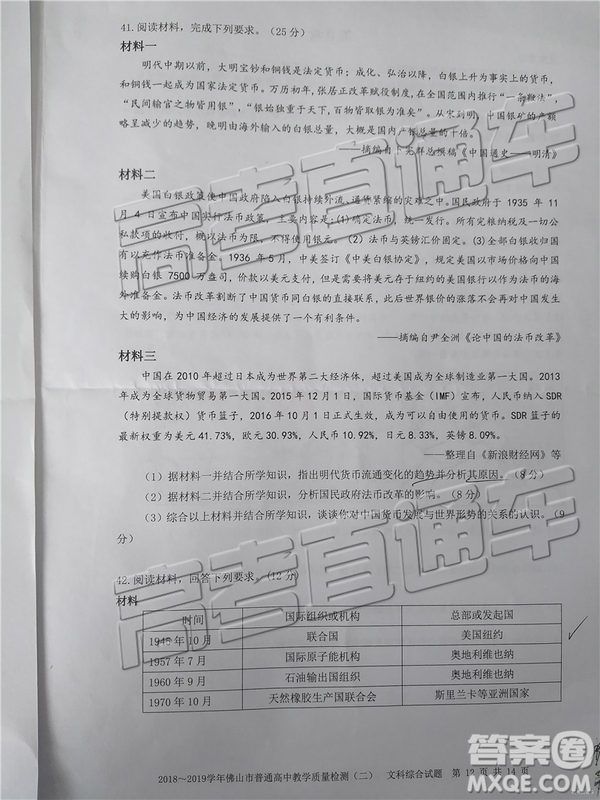 41.阅读材料，完成下列要求。（25分）
材料一
明代中期以前，大明宝钞和铜钱是法定货币；成化、弘治以降，白银上升为事实上的货币，
和铜钱一起成为国家法定货币。万历初年，张居正改革赋役制度，在全国范围内推行“一条鞭法”，
“民间输官之物皆用银”，“银始独重于天下，百物皆取银为准矣”。从宋到明，中国银矿的产额
略呈减少的趋势，晚明由海外输入的白银总量，大概是国内产银总量的十倍。
——摘编自卜宪群总撰稿《中国通史——明清》
材料二
美国白银政策使中国政府陷入白银持续外流、通货紧缩的灾难之中。国民政府于 1935 年 11
月 4 日宣布中国实行法币政策，主要内容是：(1)确定法币，统一发行。所有完粮纳税及一切公
私款项的收付，概以法币为限，不得使用银元。（2）法币与英镑汇价固定。(3)全部白银收归国
有以充作法币准备金。1936 年 5 月，中美签订《中美白银协定》，规定美国以市场价格向中国
续购白银 7500 万盎司，价款以美元支付，但是需要将美元存于纽约的美国银行以作为法币的海
外准备金。法币改革割断了中国货币同白银的直接联系，此后世界银价的涨落不会再对中国发生
大的影响，为中国经济的发展提供了一个有利条件。
——摘编自尹全洲《论中国的法币改革》
材料三
中国在 2010 年超过日本成为世界第二大经济体，超过美国成为全球制造业第一大国。2013
年成为全球货物贸易第一大国。2015 年 12 月 1 日，国际货币基金（IMF）宣布，人民币纳入 SDR
（特别提款权）货币篮子，2016 年 10 月 1 日正式生效，成为可以自由使用的货币。SDR 篮子的
最新权重为美元 41.73%，欧元 30.93%，人民币 10.92%，日元 8.33%，英镑 8.09%。
——整理自《新浪财经网》等
（1）据材料一并结合所学知识，指出明代货币流通变化的趋势并分析其原因。（8 分）
（2）据材料二并结合所学知识，分析国民政府法币改革的影响。（8 分）
（3）综合以上材料并结合所学知识，谈谈你对中国货币发展与世界形势的关系的认识。（9
分）
42.阅读材料，回答下列要求。（12 分）
材料
时间 国际组织或机构 总部或发起国
1945 年 10 月 联合国 美国纽约
1957 年 7 月 国际原子能机构 奥地利维也纳
1960 年 9 月 石油输出国组织 奥地利维也纳
1970 年 10 月 天然橡胶生产国联合会 斯里兰卡等亚洲国家
2018～2019学年佛山市普通高中教学质量检测（二） 文科综合试题 第 12 页 共 14 页
高考直通车
高考直通车
答案圈
MXQE.COM